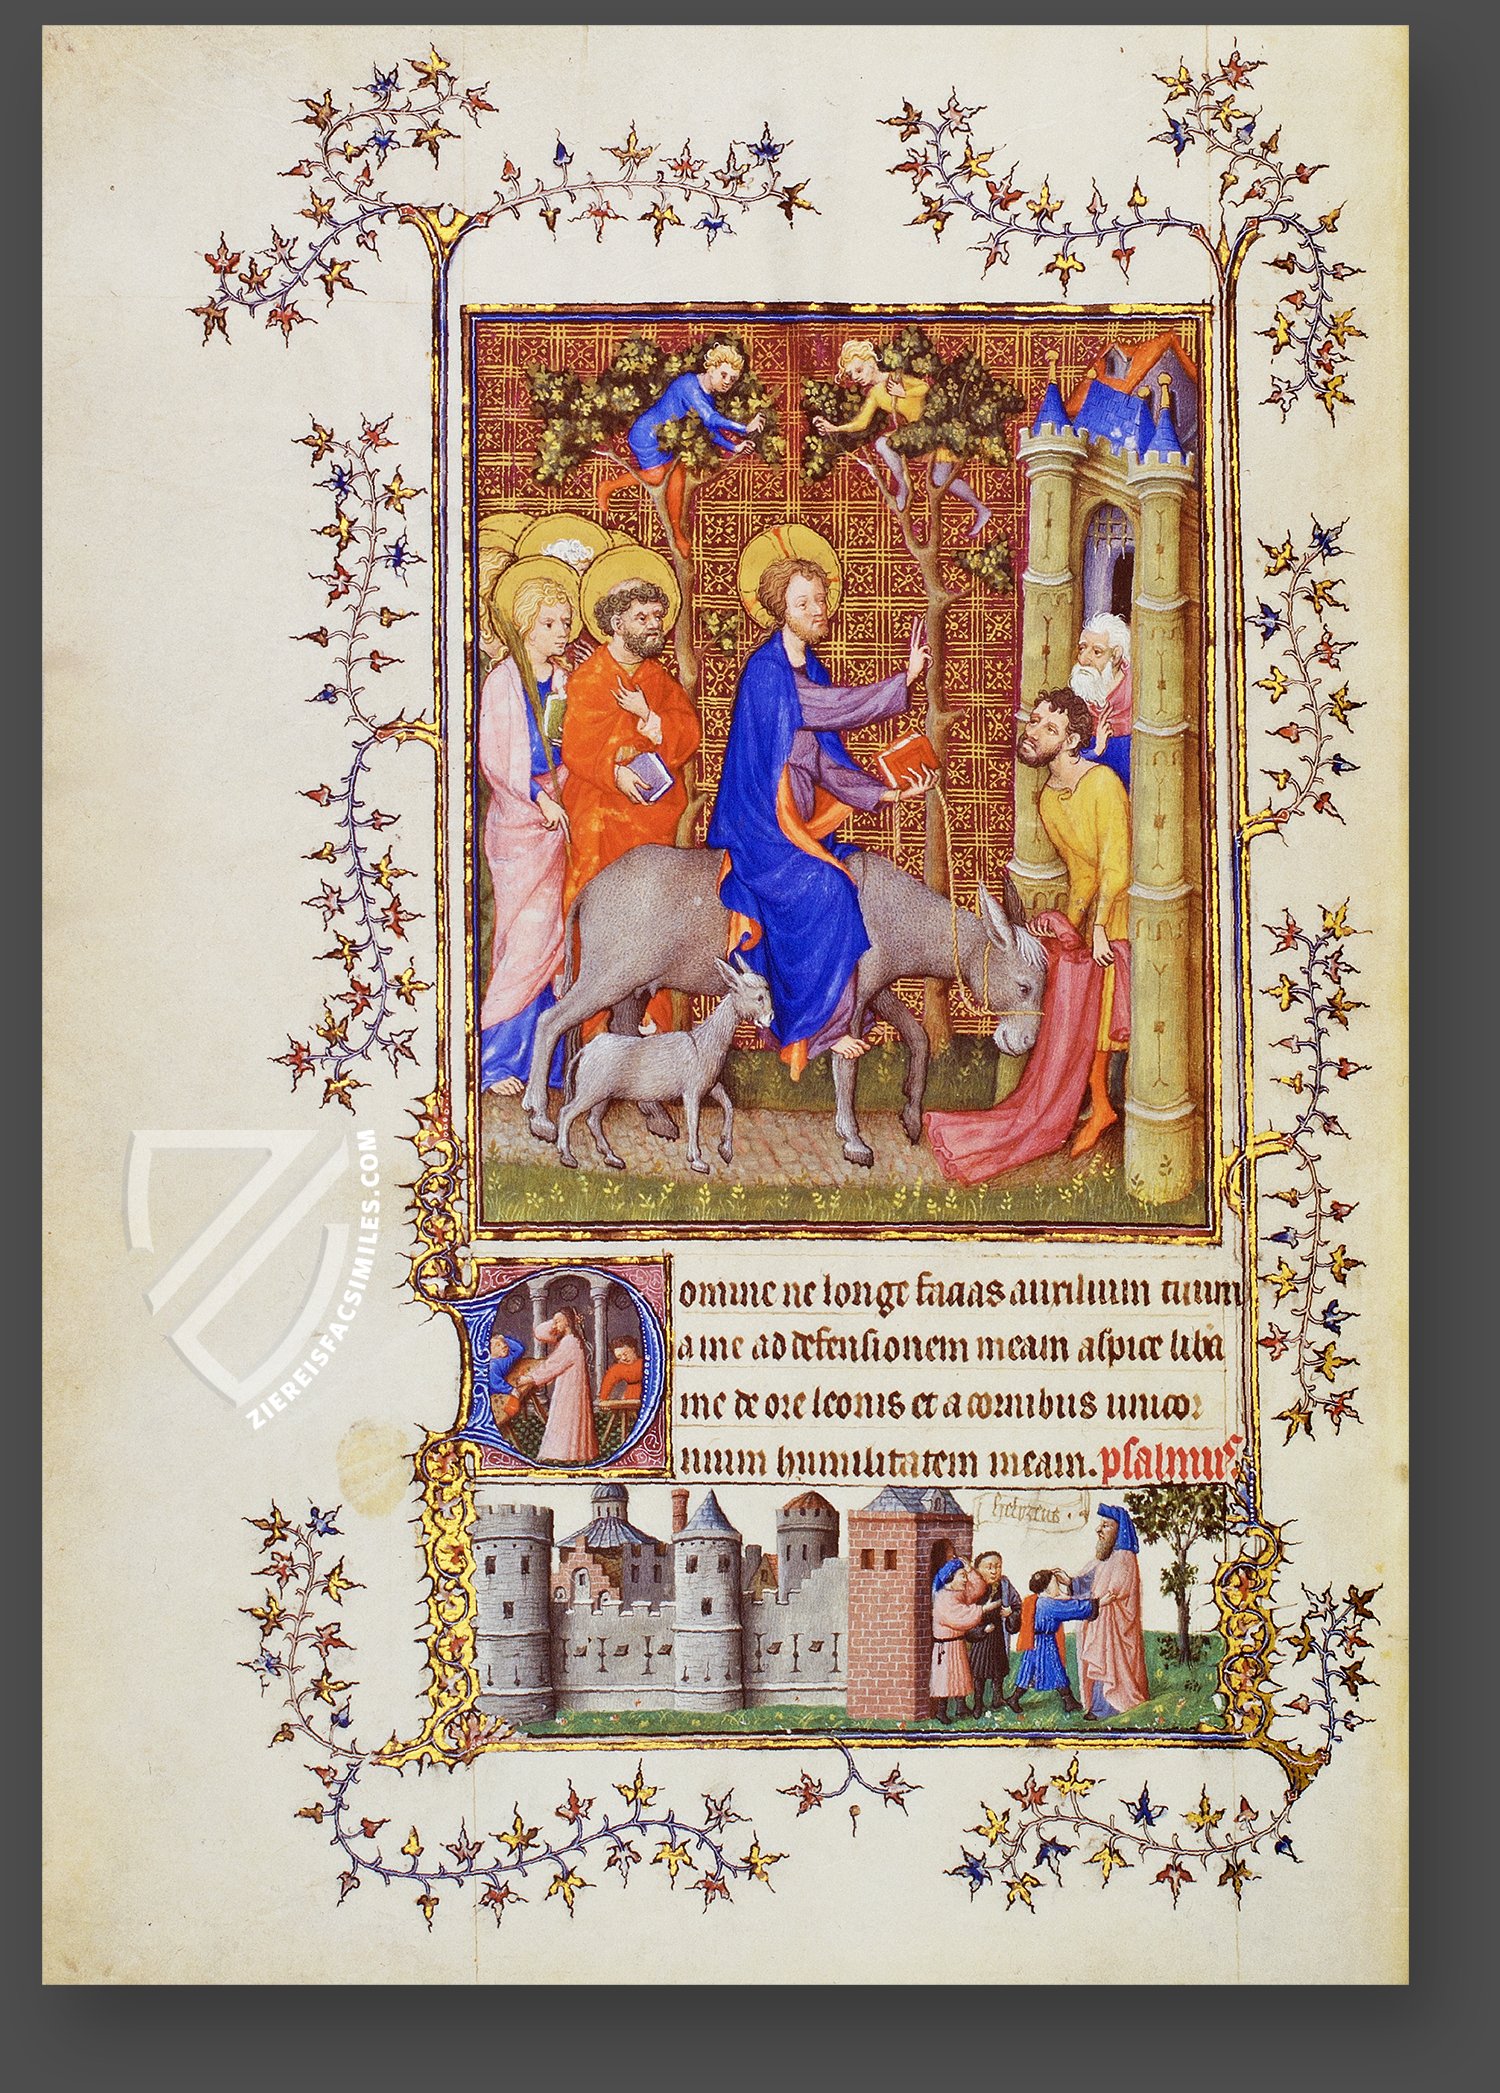 Domine ne longe facias auxilium tuum
a me ad defensionem meam aspice libera
me de ore leonis et a cornibus unicor
nium humilitatem meam. psalmus
helyzeus
ZIEREISFACSIMILES.COM